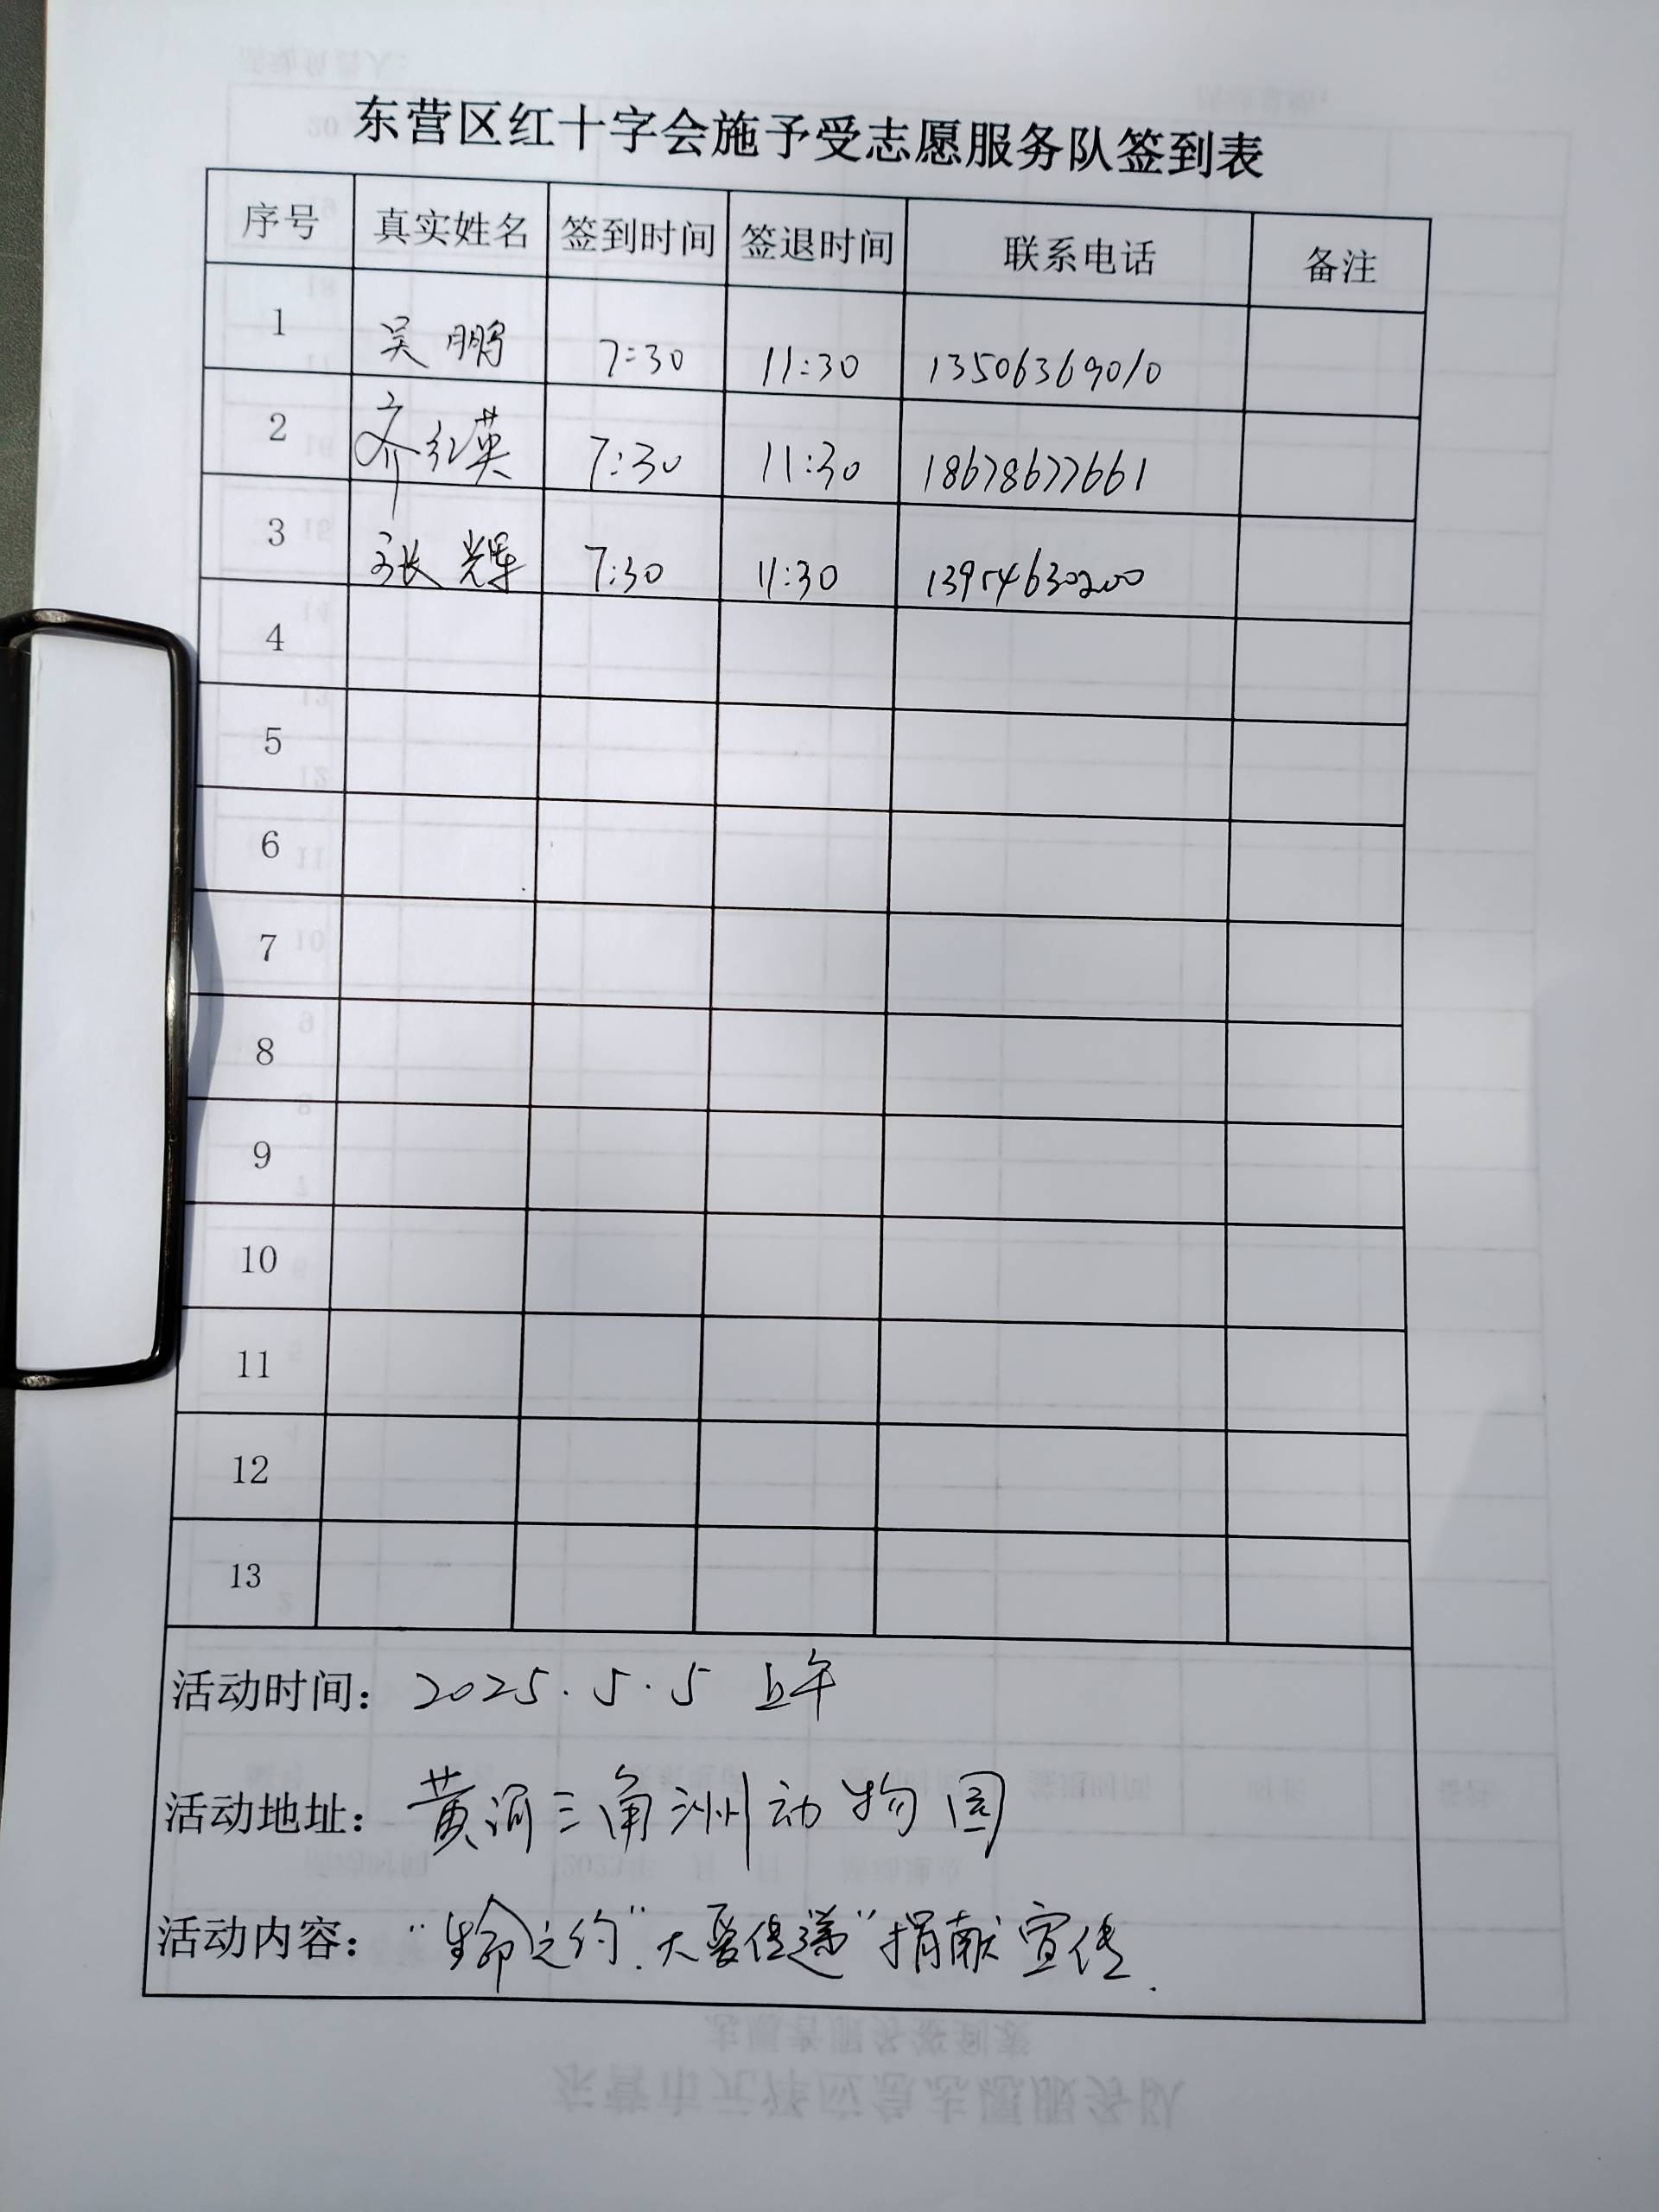 东营区红十字会施予受志愿服务队签到表
序号 真实姓名 签到时间 签退时间 联系电话 备注
1 吴鹏 7:30 11:30 13506369010
2 齐红英 7:30 11:30 18678677661
3 张辉 7:30 11:30 13954630200
4
5
6
7
8
9
10
11
12
13
活动时间: 2025.5.5 上午
活动地址: 黄河三角洲动物园
活动内容: “生命之约”.大爱传递”捐献宣传.